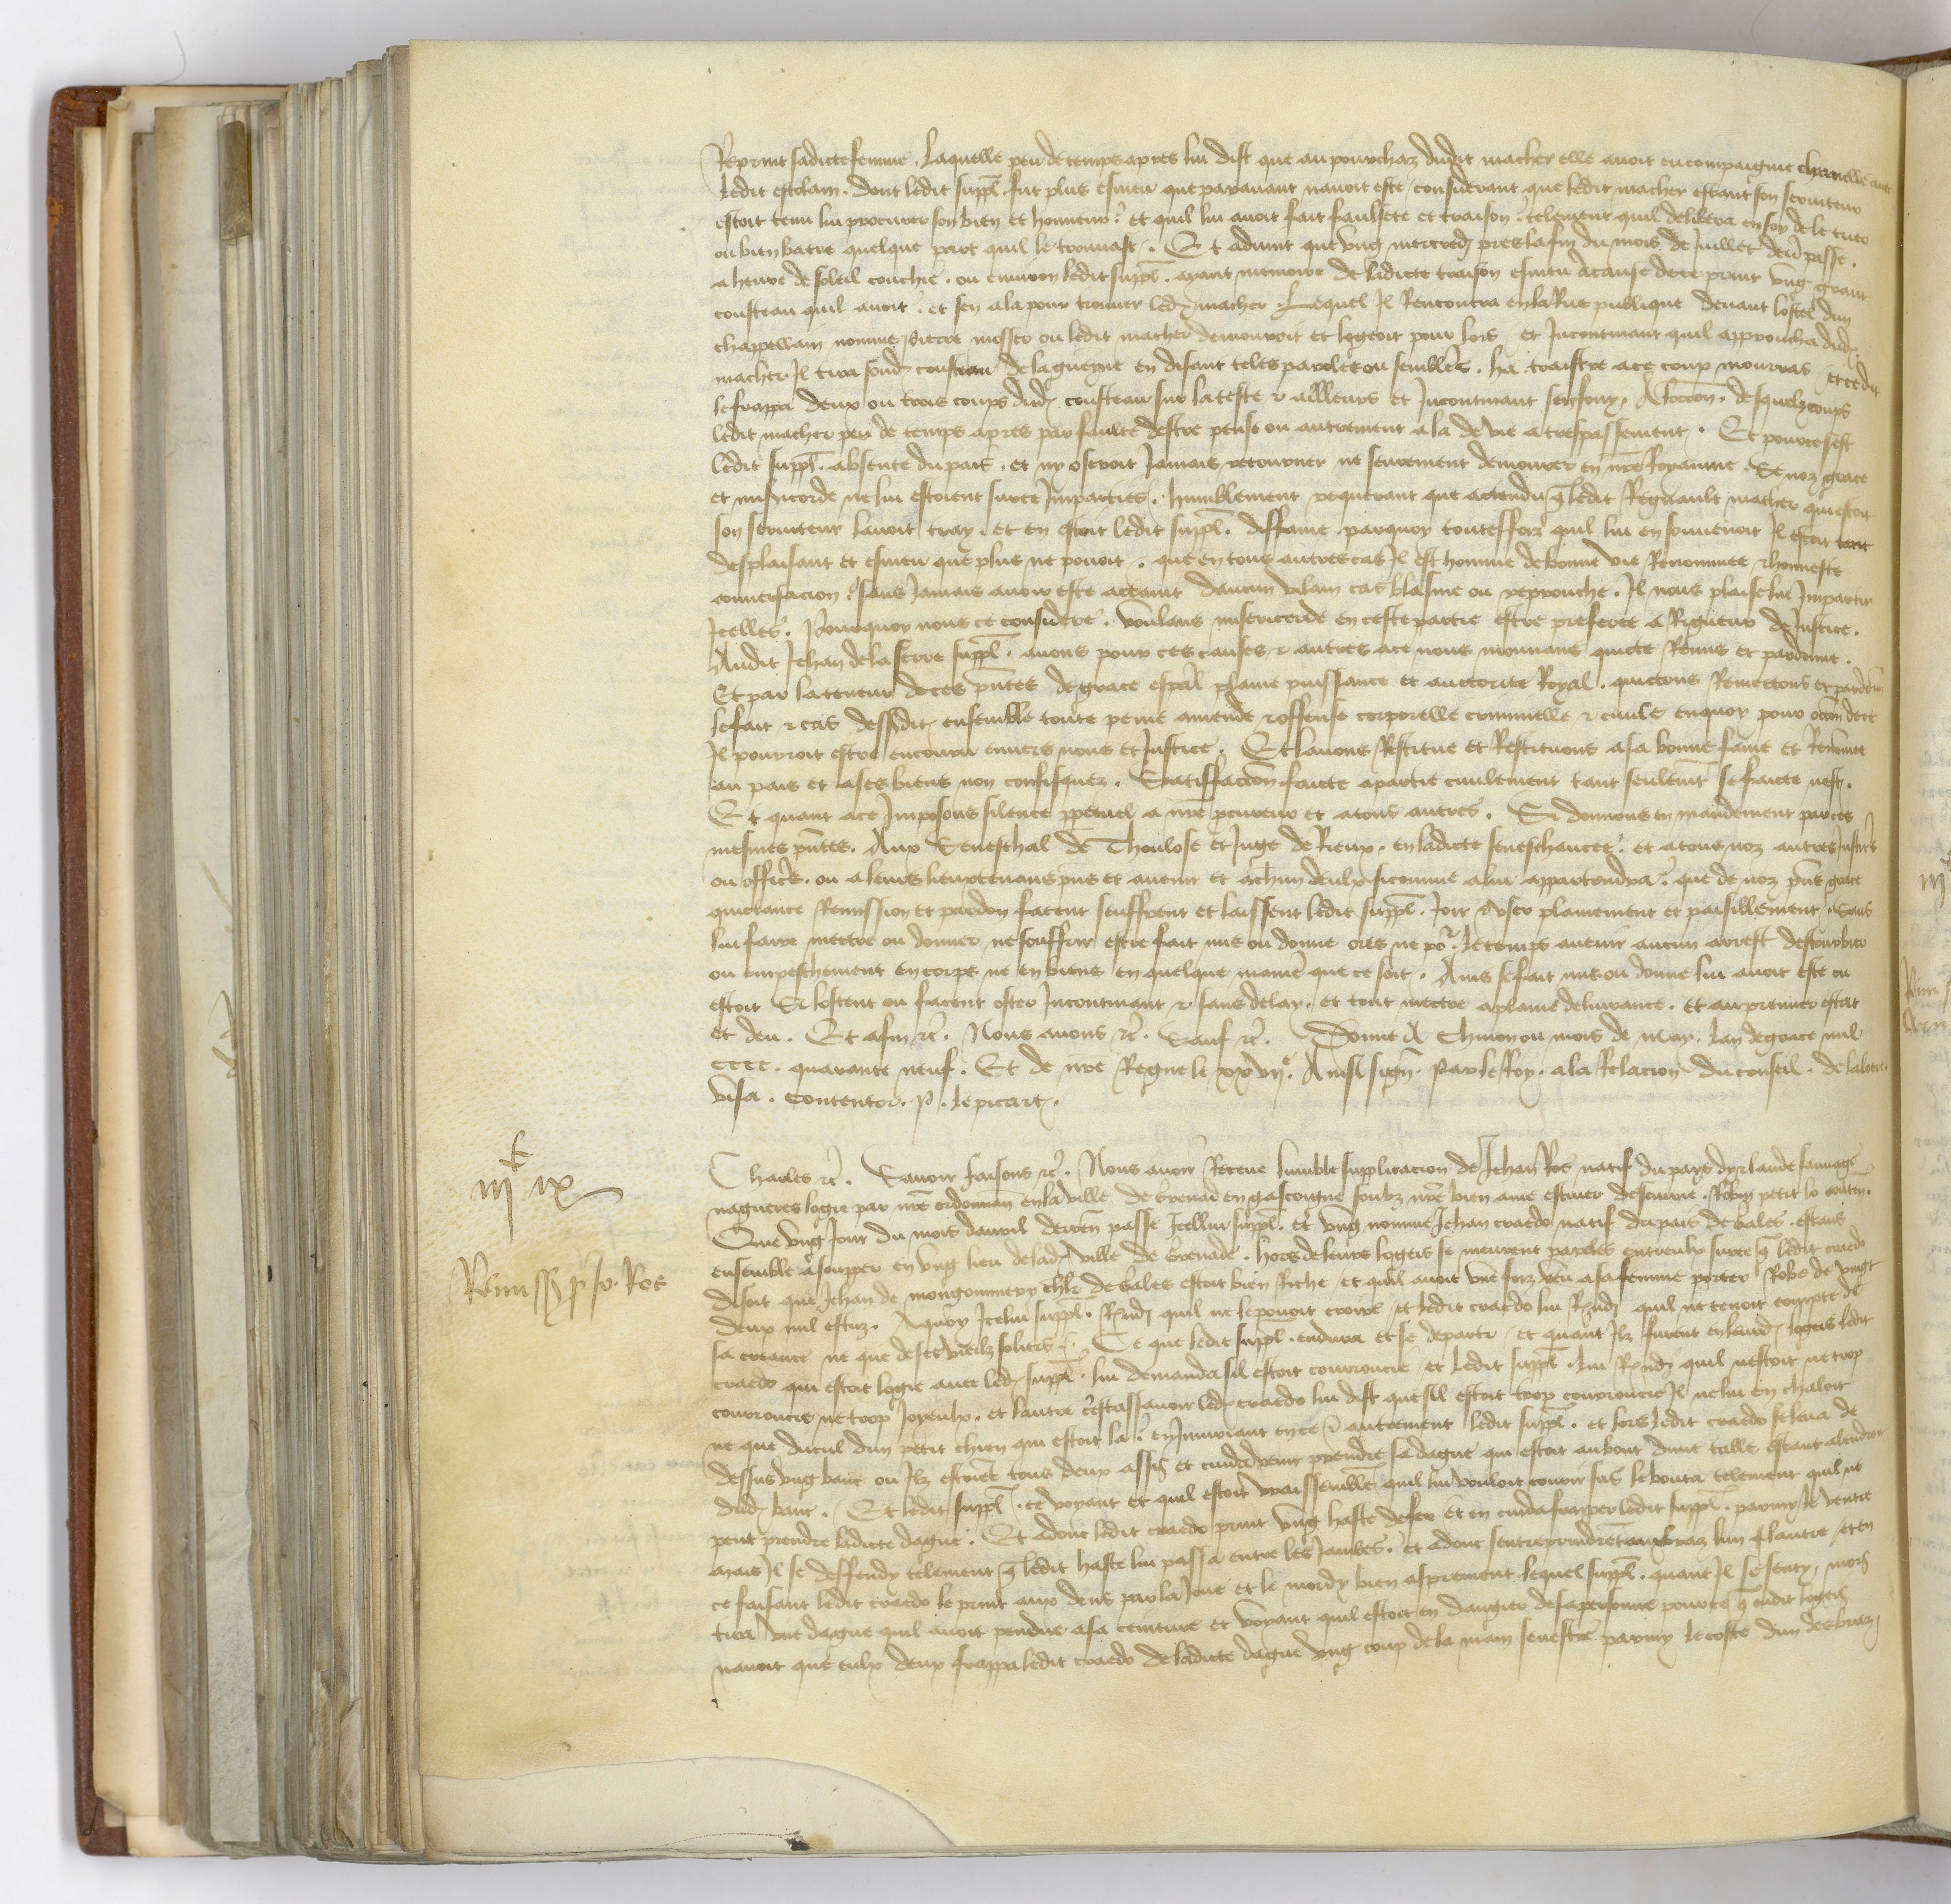 Reprint sadicte femme. Laquelle peu de temps apres lui dist que au pourchaz dudit macher elle avoit eu compaignie charnelle avec
ledit estolain. dont ledit suppl. fut plus esmeu que paravant navoit este / considerant que ledit macher estant son serviteur
estoit tenu lui procurer son bien et honneur. et quil lui avoit fait faulsete et traison. telement quil delibera en soy de le tuer
ou bien batre quelque part quil le trouvast. Et advint que ung mercredi pres la fin du mois de Juillet derr passe.
a heure de soleil couchie. ou environ ledit suppl. ayant memoire de ladicte traison esmeu a cause de ce print ung grant
cousteau quil avoit. et sen ala pour trouver led. macher. Lequel Il Rencontra en la Rue publique devant lostel dun
chappellain nomme pierre mosser ou ledit macher demouroit et logeoit pour lors et Incontinant quil approucha dud.
macher Il tira sond. cousteau de la gueyne en disant teles paroles ou sembles. ha traistre a ce coup mourras / et ce dit
le frappa deux ou trois coups dud. cousteau sur la teste & ailleurs et Incontinant senfouy. A loccon. desquelz coups
ledit macher peu de temps apres par faulte destre pense ou autrement ala de vie a trespassement. Et pour ce sest
ledit suppl. absente du pais. et ny oseroit Jamais retourner ne seurement demourer en nre Royaume. Se noz grace
et misericorde ne lui estoient sur ce Imparties. humblement requerant que actendu q ledit Regnault macher qui estoit
son serviteur lavoit tray. et en estoit ledit suppl. diffame parquoy toutesfoiz quil lui en souvenoit Il estoit tant
desplaisant et esmeu que plus ne povoit. que en tous autres cas Il est homme de bonne vie Renommee & honneste
conversacion. sans Jamais avoir este actaint daucun vilain cas blasme ou reprouche. Il nous plaise lui Impartir
Icelles. Pourquoy nous ce considere. voulans misericorde en ceste partie estre preferee a Rigueur de Justice.
Audit Jehan de la serre suppl. avons pour ces causes & autres a ce nous mouvans quicte Remis et pardonne.
Et par la teneur de ces pntes de grace espal plaine puissance et auctorite Royal. quictons Remectons et pardonn
le fait & cas dessusdit ensemble toute peine amende & offense corporelle criminelle & civile en quoy pour occon de ce
Il pourroit estre encouru envers nous et Justice. Et lavons Restitue et Restituons a sa bonne fame et Renomee
au pais et a ses biens non confisquez. Satisfaction faicte a partie civilement tant seulemt se faicte nest.
Et quant a ce Imposons silence ppetuel a nre procureur et a tous autres. Si donnons en mandement par ces
mesmes pntes. Aux Seneschal de Thoulose et Juge de Rieux. en ladicte seneschaucee. et a tous noz autres Justiciers
ou officiers. ou a leurs lieuxtenans pns et avenir et a chun deulx sicomme a lui appartendra. que de noz pns grace
quictance Remission et pardon facent seuffrent et laissent ledit suppl. Joir & user plainement et paisiblement. Sans
lui faire mectre ou donner ne souffrir estre fait mis ou donne ores ne por le temps avenir aucun arrest destourbier
ou empeschement en corps ne en biens en quelque maniere que ce soit. Ains se fait mis ou donne lui avoit este ou
estoit Si lostent ou facent oster Incontinant & sans delay. et tout mectre a plaine delivrance. et au premier estat
et deu. Et afin &c. Nous avons &c. Sauf &c. Donne A Chinon ou mois de may. Lan de grace mil
cccc. quarante neuf. Et de nre Regne le xxvij.e Ainsi sign. Par le Roy. a la Relacion du conseil. delaloere.
Visa. Contentor. P. le picart.
iijc ix
Remiss. p Jo. Ros
Charles &c. Savoir faisons &c. Nous avoir Receue lumble supplicacion de Jehan Ros natif du pays dyrlande sauvage
nagueres logie par nre ordonnan en la ville de Grenade en gascoigne soubz nre bien ame escuier descuirie. Robin petit lo conten.
Que ung Jour du mois davril derren passe Icellui suppl. et ung nomme Jehan craedo natif du pais de Gales. estans
ensemble a soupper en ung lieu de lad. ville de Grenade. hors de leurs logeis se meurent paroles entreulx sur ce q ledit craedo
disoit que Jehan de mongommery chlr de Gales estoit bien Riche / et quil avoit une foiz veu a sa femme porter Robe de vingt
deux mil escuz. A quoy Icelui suppl. Rondi quil ne le povoit croire / et ledit craedo lui Rondi quil ne tenoit compte de
sa creance ne que de ses vieilz soliers. Ce que ledit suppl. endura et se departi / et quant Ilz furent en leurd. logeis ledit
craedo qui estoit logie avec led. suppl. lui demanda sil estoit courroucie / et ledit suppl. lui Rondi quil nestoit ne trop
courroucie ne trop Joyeulx. et lautre cestassavoir led. craedo lui dist que sil estoit trop courroucie Il ne lui en chaloit
ne que du cul dun petit chien qui estoit la. en Injuriant en ce & autrement ledit suppl. et lors ledit craedo se leva de
dessus ung banc ou Ilz estoiet tous deux assis et cuida venir prendre sa dague qui estoit au bout dune table estant alendroit
dud. banc. Et ledit suppl. ce voyant et quil estoit vraissemble quil lui vouloit courir sus le bouta telement quil ne
peut prendre ladicte dague. Et adonc ledit craedo print ung haste de fer et en cuida frapper ledit suppl. parmy le ventre
mais Il se deffendy telement q ledit haste lui passa entre les Jambes. et adonc sentreprindret aux braz lun & lautre / et en
ce faisant ledit craedo le print aux dens par la Joue et le mordy bien asprement lequel suppl. quant Il se senty mors
tira une dague quil avoit pendue a sa ceinture et voyant quil estoit en dangier de sa personne pour ce q oudit logeis
navoit que eulx deux frappa ledit craedo de ladicte dague ung coup de la main senestre parmy le coste dun des braz